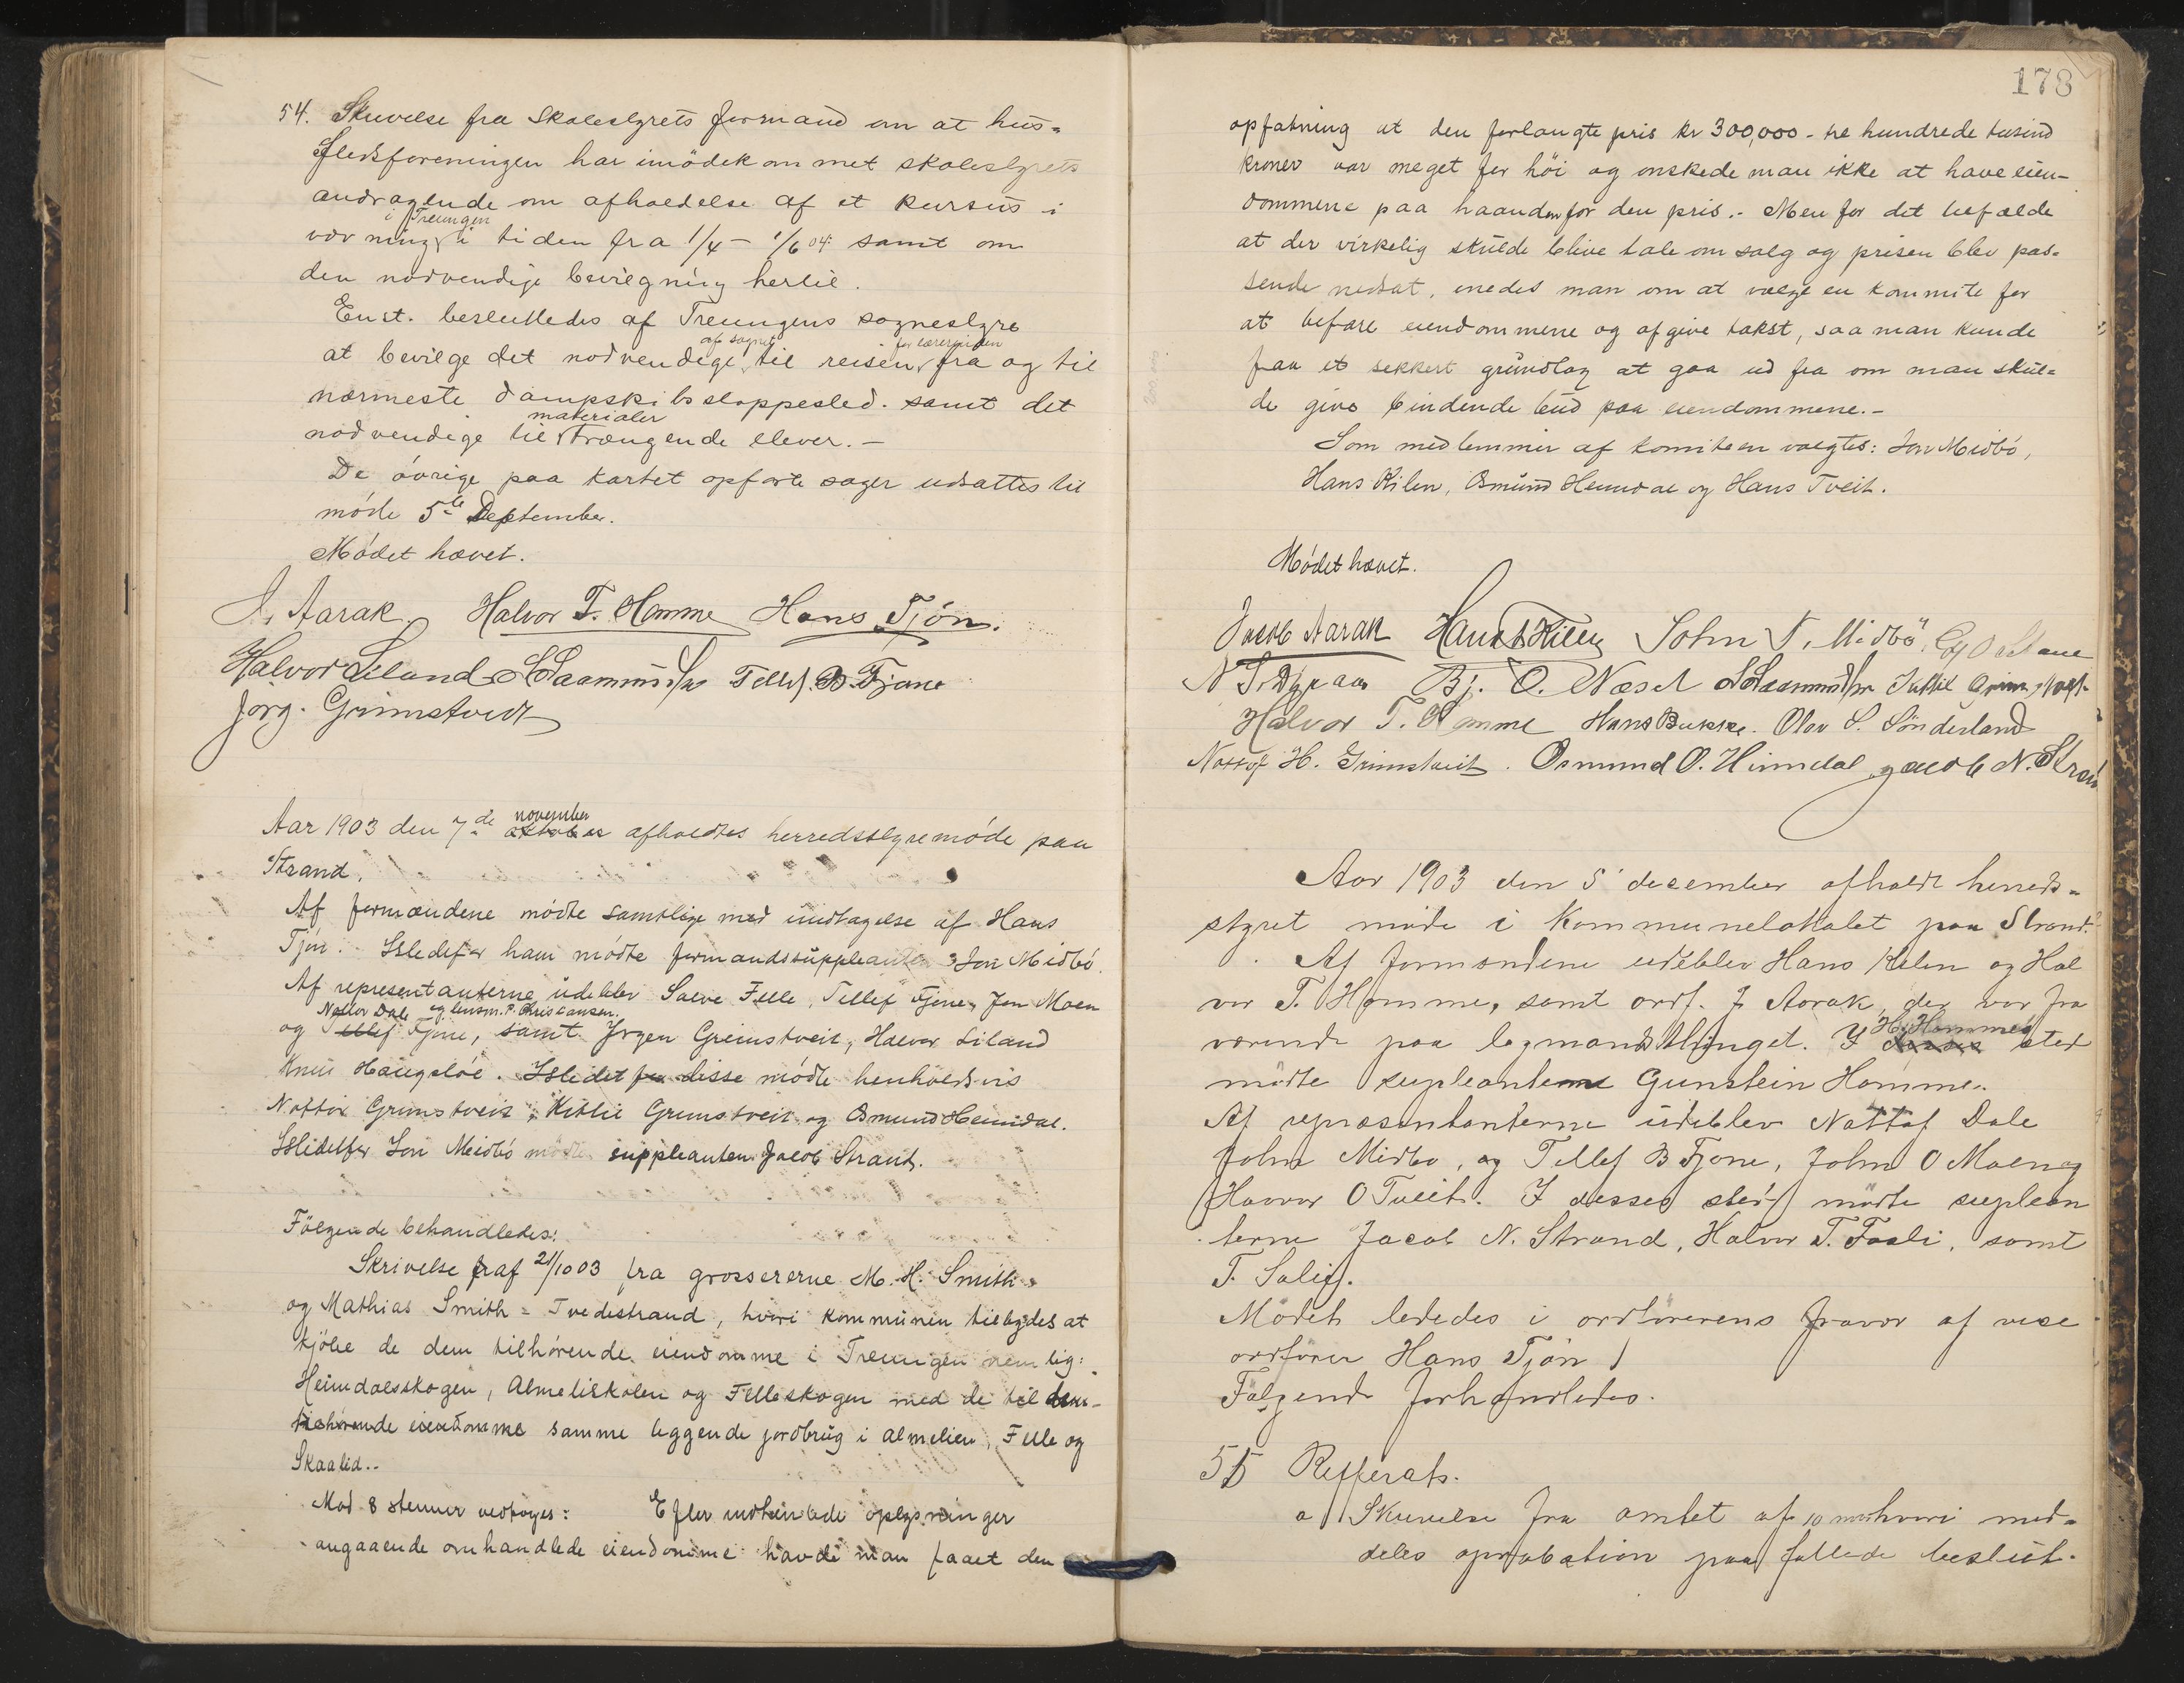 54. Skrivelse fra Skolestyrets formand om at hus-
flidsforeningen har imödekommet skolestyrets
andragende om afholdelse af et kursus i
i Treungen
vævning i tiden fra 1/4 - 1/6 04 samt om
den nødvendige bevilgning hertil.
Enst. besluttedes af Treungens sognestyre
af sognet for lærerinden
at bevilge det nødvendige til reisen fra og til
nærmeste dampskibsstoppested. samt det
materialer
nødvendige til trængende elever. -
De övrige paa kartet opførte sager udsattes til
möde 5te Deptember.
Mödet hævet.
J. Aarak Halvor T. Homme Hans Tjón.
Halvor Liland Tellef B. Fjone
Jörg. Grimstvedt
november
Aar 1903 den 7de oktober afholdtes herredsstyremóde paa
Strand.
Af formændene mödte samtlige med undtagelse af Hans
Tjön. Istedetfor ham mödte formandssuppleanten Jon Midbó.
Af representanterne udeblev Salve Felle, Tellef Fjone, Jon Moen
Nottov Dale og lensm. P. Christiansen.
og Tellef Fjone, samt Jörgen Grimstveit, Halvor Liland
Knut Haugsløe. Istedet for disse mödte henholdsvis
Nottov Grimstveit, Kittil Grimstveit og Osmund Heimdal.
Istedetfor Jon Meidbó mødte suppleanten Jacob Strand.
Fölgende behandledes:
Skrivelse af 21/10 03 fra grossererne M. H. Smith
og Mathias Smith = Tvedestrand, hvori kommunen tilbydes at
kjöbe de dem tilhörende eiendomme i Treungen nemlig:
Heimdalsskogen, Almeliskolen og Felleskogen med de til dem-
tilhørende eiendomme samme liggende jordbrug i Almelien, Felle og
Skaalid..
Mod 8 stemmer vedtoges: Efter indhentede oplysninger
angaaende omhandlede eiendomme havde man faaet den
178
opfatning at den forlangte pris kr 300,000 - tre hundrede tusind
kroner var meget for höi og ønskede man ikke at have eien-
dommene paa haanden for den pris. - Men for det tilfælde
at der virkelig skulde blive tale om salg og prisen blev pas-
sende nedsat, enedes man om at vælge en kommite for
at befare eiendommene og afgive takst, saa man kunde
faa et sekkert grundlag at gaa ud fra om man skul-
de give bindende bud paa eiendommene. -
Som medlemmer af komiteen valgtes: Jon Midbó,
Hans Kilen, Osmund Heimdal og Hans Tveit.
Mödet hævet.
Jacob Aarak Hans Kilen John T. Midbö
Bj. O. Næset Kittil Grimstvet
Halvor T. Homme Hans Bukke. Olav S. Sönderland
Nottof H. Grimstveit. Osmund O. Heimdal Jacob N. Strand
Aar 1903 den 5 desember afholdt herreds-
styret möde i Kommunelokalet paa Strand.
Af formændene udeblev Hans Kilen og Hal
vor T. Homme, samt ordf. J Aarak, der var fra
H. Hommes
værende paa lagmandsthinget. I disses sted
mödte supleanten Gunstein Homme.
Af repræsentanterne udeblev Nottof Dale
John Midbo, og Tellef B Fjone, John O Moen og
Havvor O Tveit. I desses sted mödte suplean
terne Jacob N. Strand, Halvor T. Fosli, samt
T. Salif.
Mödet lededes i ordförerens fravær af vise
ordförer Hans Tjön
Følgende forhandledes.
55 Refferats.
a Skrivelse fra amtet af 10 hvori med-
deles aprobation paa fattede beslut-